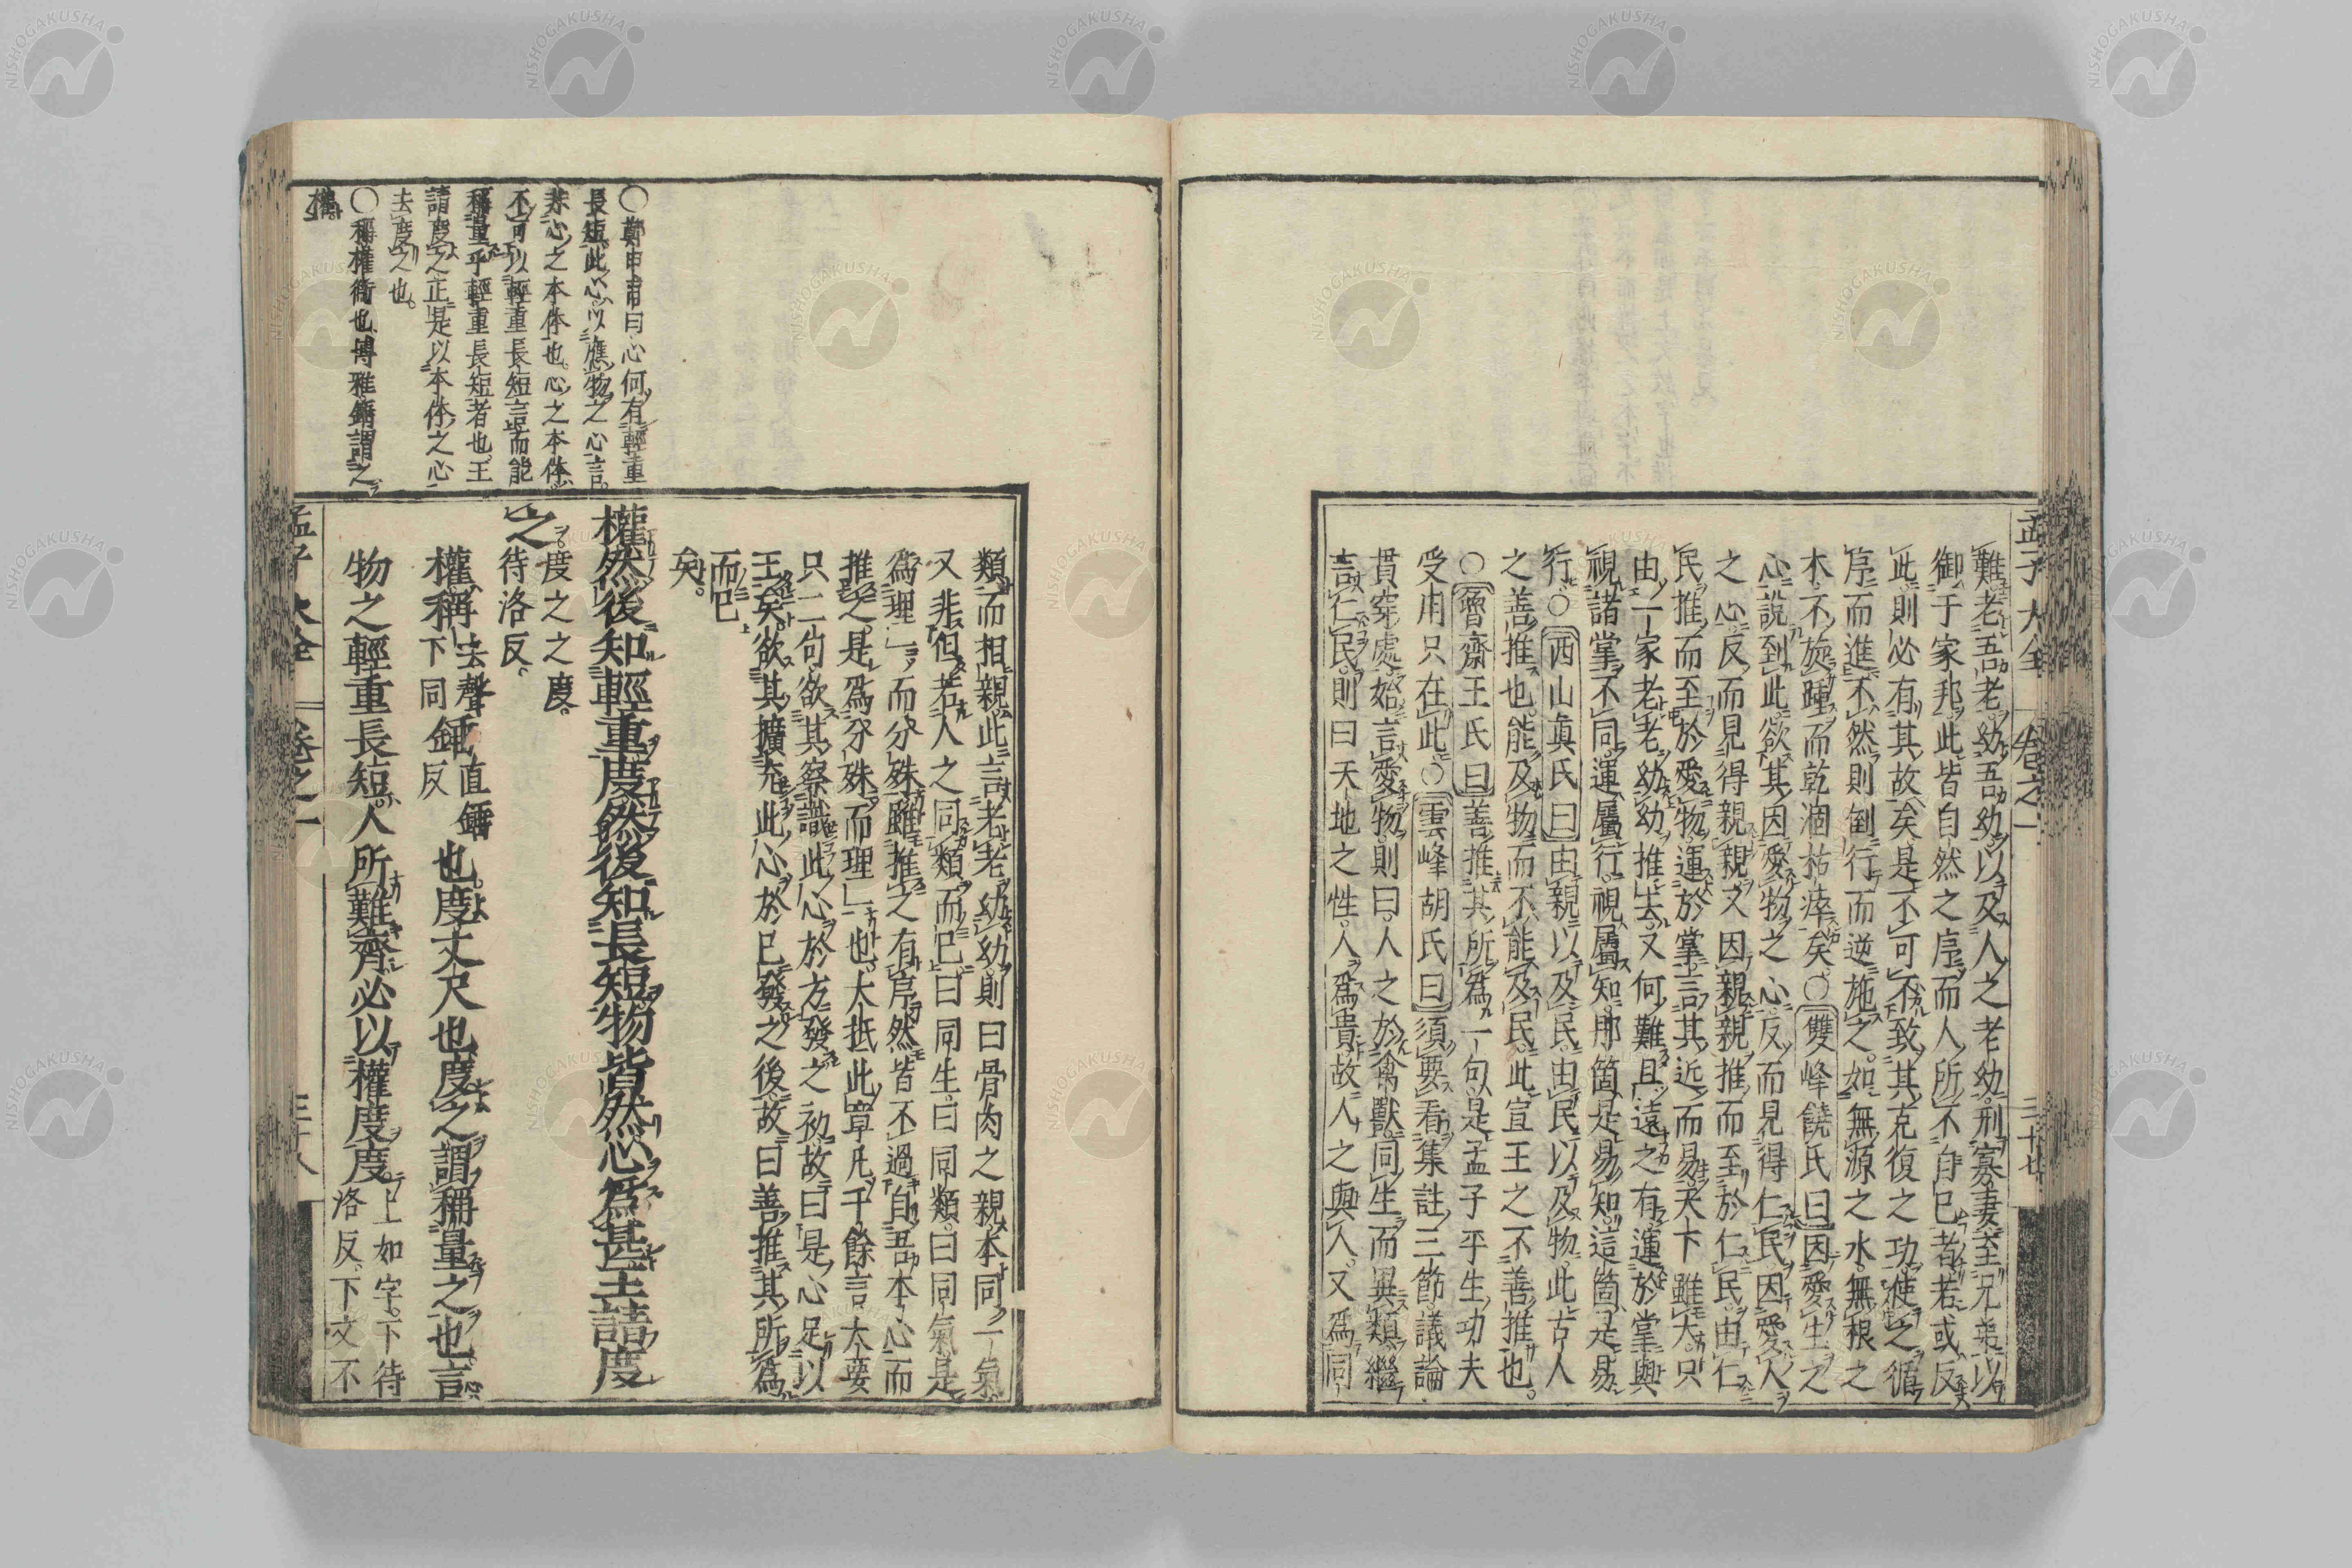 孟子大全 卷之一 三十七
難老吾老幼吾幼以及人之老幼刑寡妻至兄弟以
御于家邦此皆自然之序而人所不自已者若或反
此則必有其故矣是不可不致其克復之功使之循
序而進不然則倒行而逆施之如無源之水無根之
木不旋踵而乾涸枯瘁矣○雙峰饒氏曰因愛生之
心說到此欲其因愛物之心反而見得仁民因愛人
之心反而見得親親又因親親推而至於仁民由仁
民推而至於愛物運於掌言其近而易天下雖大只
由一家老老幼幼推去又何難且遠之有運於掌與
視諸掌不同運屬行視屬知那箇是易知這箇是易
行○西山眞氏曰由親以及民由民以及物此古人
之善推也能及物而不能及民此宣王之不善推也
○魯齋王氏曰善推其所爲一句是孟子平生功夫
受用只在此○雲峰胡氏曰須要看集註三節議論
貫穿處始言愛物則曰人之於禽獸同生而異類繼
言仁民則曰天地之性人爲貴故人之與人又爲同
類而相親此言老老幼幼則曰骨肉之親本同一氣
又非但若人之同類而已曰同生曰同類曰同氣是
爲理一而分殊雖推之有序然皆不過自吾本心而
推之是爲分殊而理一也大抵此章凡千餘言大要
只二句欲其察識此心於方發之初故曰是心足以
王矣欲其擴充此心於已發之後故曰善推其所爲
而已
矣
權然後知輕重度然後知長短物皆然心爲甚王請度
之
度之之度
待洛反
權稱去聲下同錘直錘反也度丈尺也度之謂稱量之也言
物之輕重長短人所難齊必以權度度上如字下待洛反下文不
孟子大全 卷之一 三十八
○鄭申甫曰心何有輕重
長短此心以應物之心言
非心之本体也心之本体
不可以輕重長短言而能
稱量乎輕重長短者也王
請度之正是以本体之心
去度之也
○稱權衡也博雅錘謂之
權
NISHOGAKUSHA